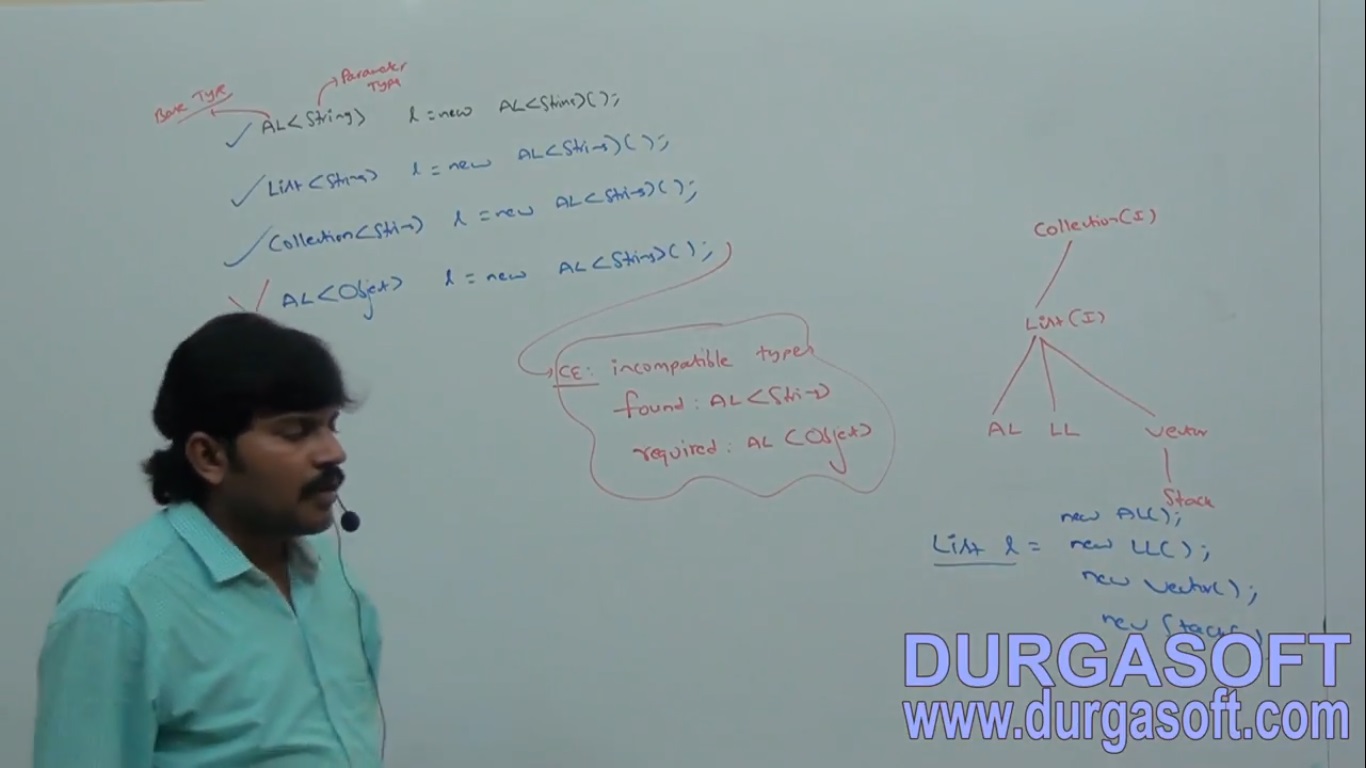 Base Type
Parameter
Type
AL<String> l = new AL<String>();
List<String> l = new AL<String>();
Collection<String> l = new AL<String>();
AL<Object> l = new AL<String>();
CE: incompatible types
found: AL<String>
required: AL<Object>
Collection(I)
List(I)
AL LL Vector
Stack
new AL();
List l = new LL();
new Vector();
new Stack()
DURGASOFT
www.durgasoft.com